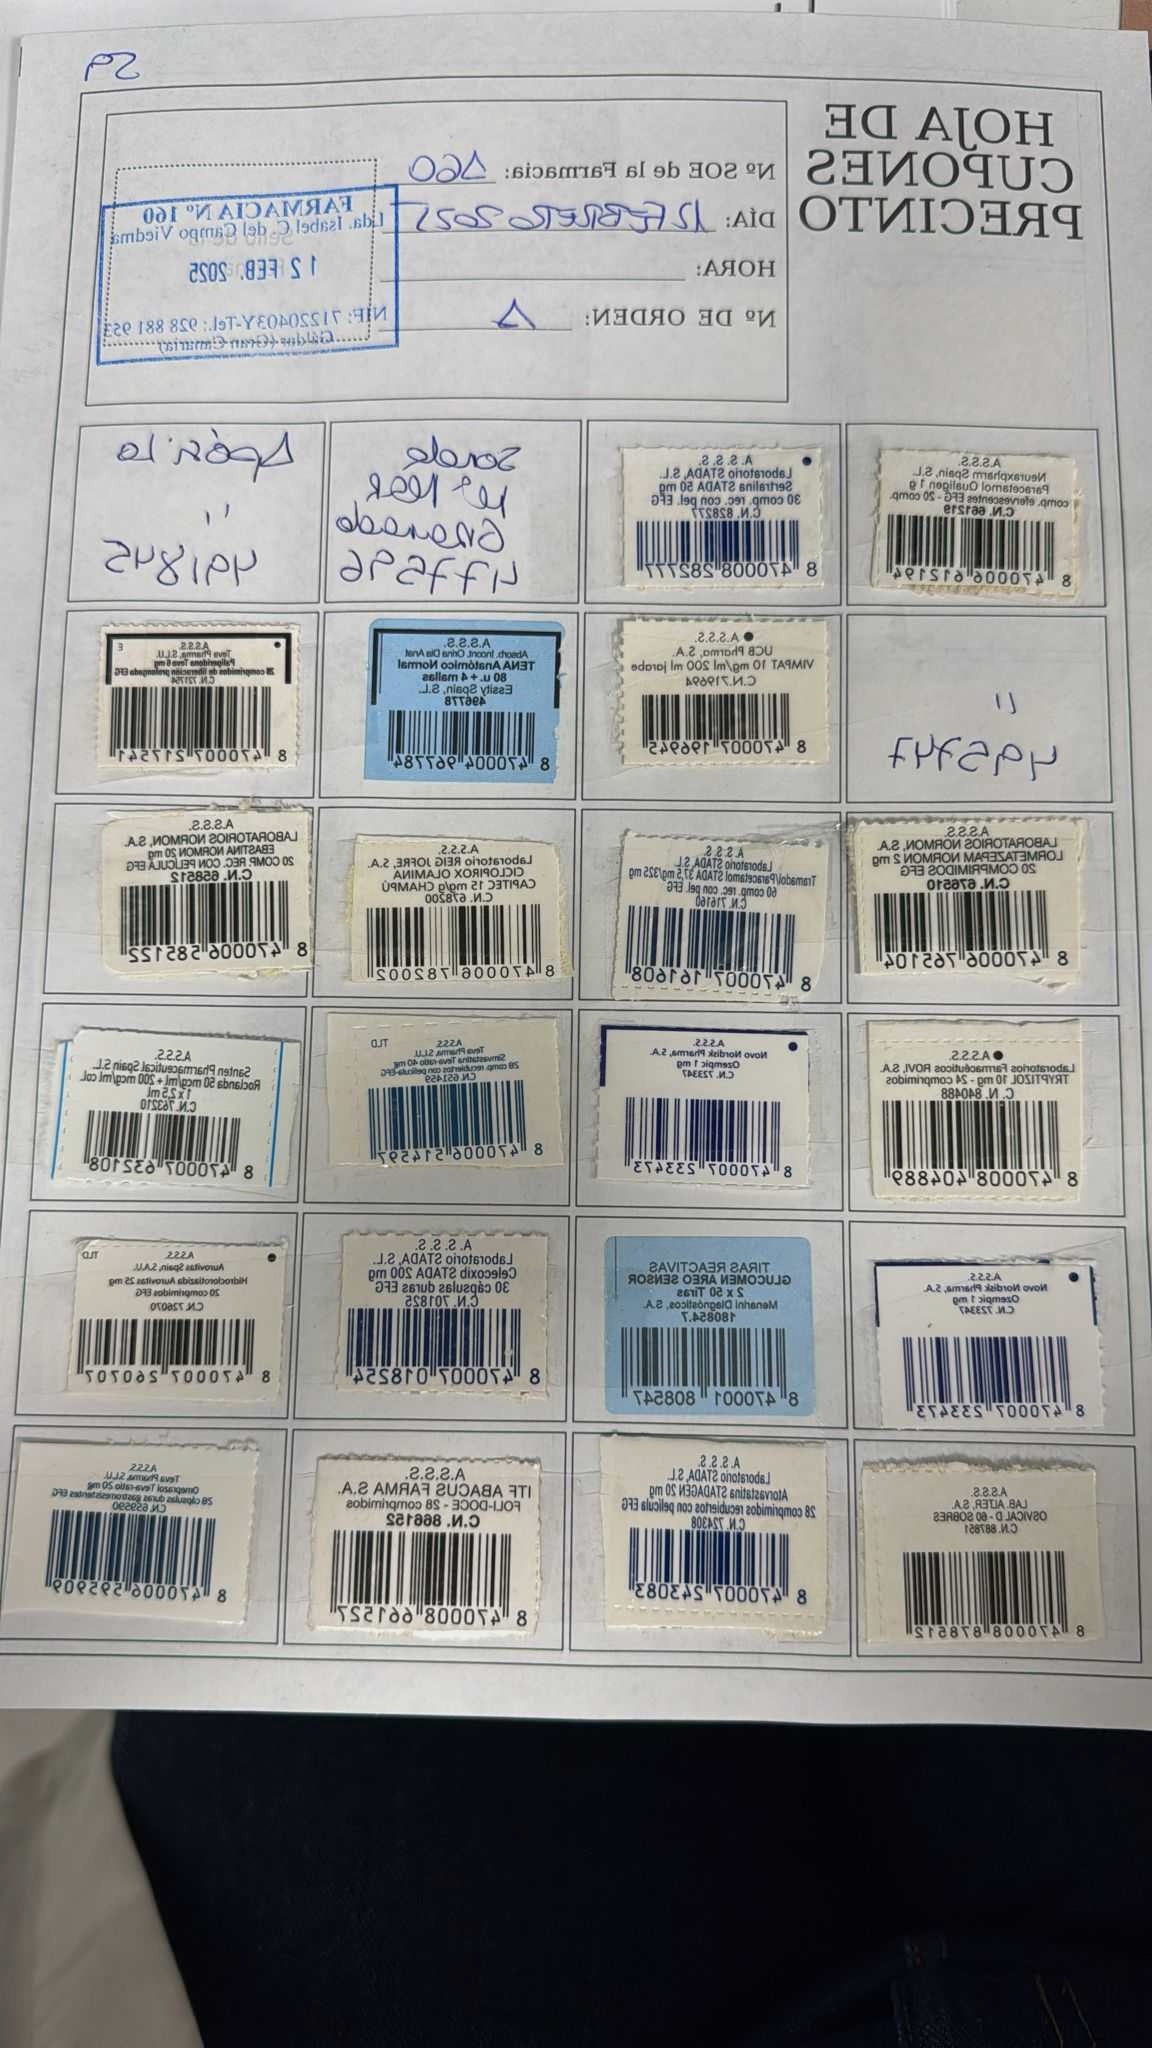 59
HOJA DE
CUPONES
PRECINTO
Nº SOE de la Farmacia: 160
DÍA: 12 FEBRERO 2025
HORA:
Nº DE ORDEN: 1
FARMACIA Nº 160
Lda. Isabel C. del Campo Viedma
12 FEB. 2025
NIF: 71220403Y-Tel.: 928 881 953
Gáldar (Gran Canaria)
A.S.S.S.
Neuraxpharm Spain, S.L.
Paracetamol Qualigen 1 g
comp. efervescentes EFG - 20 comp.
C.N. 661219
8 470006 612194
A. S. S. S.
Laboratorio STADA, S.L.
Sertralina STADA 50 mg
30 comp. rec. con pel. EFG
C.N. 828277
8 470008 282777
Sonda
477596
491845
''
495747
A.S.S.S.
UCB Pharma, S.A.
VIMPAT 10 mg/ml 200 ml jarabe
C.N.719694
8 470007 196945
A.S.S.S.
Absorb. Incont. Orina Día Anat
TENA Anatómico Normal
80 u. + 4 mallas
Essity Spain, S.L.
496778
8 470004 967784
A.S.S.S. E
Teva Pharma, S.L.U.
Paliperidona Teva 6 mg
28 comprimidos de liberación prolongada EFG
C.N. 721754
8 470007 217541
A.S.S.S.
LABORATORIOS NORMON, S.A.
LORMETAZEPAM NORMON 2 mg
20 COMPRIMIDOS EFG
C.N. 676510
8 470006 765104
A. S. S. S.
Laboratorio STADA, S.L.
Tramadol/Paracetamol STADA 37,5 mg/325 mg
60 comp. rec. con pel. EFG
C.N. 716160
8 470007 161608
A.S.S.S.
Laboratorio REIG JOFRE, S.A.
CICLOPIROX OLAMINA
CAPITEC 15 mg/g CHAMPÚ
C.N. 678200
8 470006 782002
A.S.S.S.
LABORATORIOS NORMON, S.A.
EBASTINA NORMON 20 mg
20 COMP. REC. CON PELÍCULA EFG
C.N. 658512
8 470006 585122
A.S.S.S.
Laboratorios Farmacéuticos ROVI, S.A.
TRYPTIZOL 10 mg - 24 comprimidos
C. N. 840488
8 470008 404889
A.S.S.S.
Novo Nordisk Pharma, S.A.
Ozempic 1 mg
C.N. 723347
8 470007 233473
A.S.S.S. TLD
Teva Pharma, S.L.U.
Simvastatina Teva-ratio 40 mg
28 comp. recubiertos con película-EFG
C.N. 651459
8 470006 514597
A.S.S.S.
Santen Pharmaceutical Spain S.L.
Roclanda 50 mcg/ml + 200 mcg/ml col.
1 x 2.5 ml
C.N. 763210
8 470007 632108
A.S.S.S.
Novo Nordisk Pharma, S.A.
Ozempic 1 mg
C.N. 723347
8 470007 233473
TIRAS REACTIVAS
GLUCOMEN AREO SENSOR
2 x 50 Tiras
Menarini Diagnósticos, S.A.
180854.7
8 470001 808547
A. S. S. S.
Laboratorio STADA, S.L.
Celecoxib STADA 200 mg
30 cápsulas duras EFG
C.N. 701825
8 470007 018254
A.S.S.S. TLD
Aurovitas Spain, S.A.U.
Hidroclorotiazida Aurovitas 25 mg
20 comprimidos EFG
C.N. 726070
8 470007 260707
A.S.S.S.
LAB. ALTER, S.A.
OSVICAL D - 60 SOBRES
C.N. 887851
8 470008 878512
A. S. S. S.
Laboratorio STADA, S.L.
Atorvastatina STADAGEN 20 mg
28 comprimidos recubiertos con película EFG
C.N. 724308
8 470007 243083
A.S.S.S.
ITF ABACUS FARMA S.A.
FOLI-DOCE - 28 comprimidos
C.N. 866152
8 470008 661527
A.S.S.S.
Teva Pharma, S.L.U.
Omeprazol Teva-ratio 20 mg
28 cápsulas duras gastrorresistentes EFG
C.N. 659590
8 470006 595909